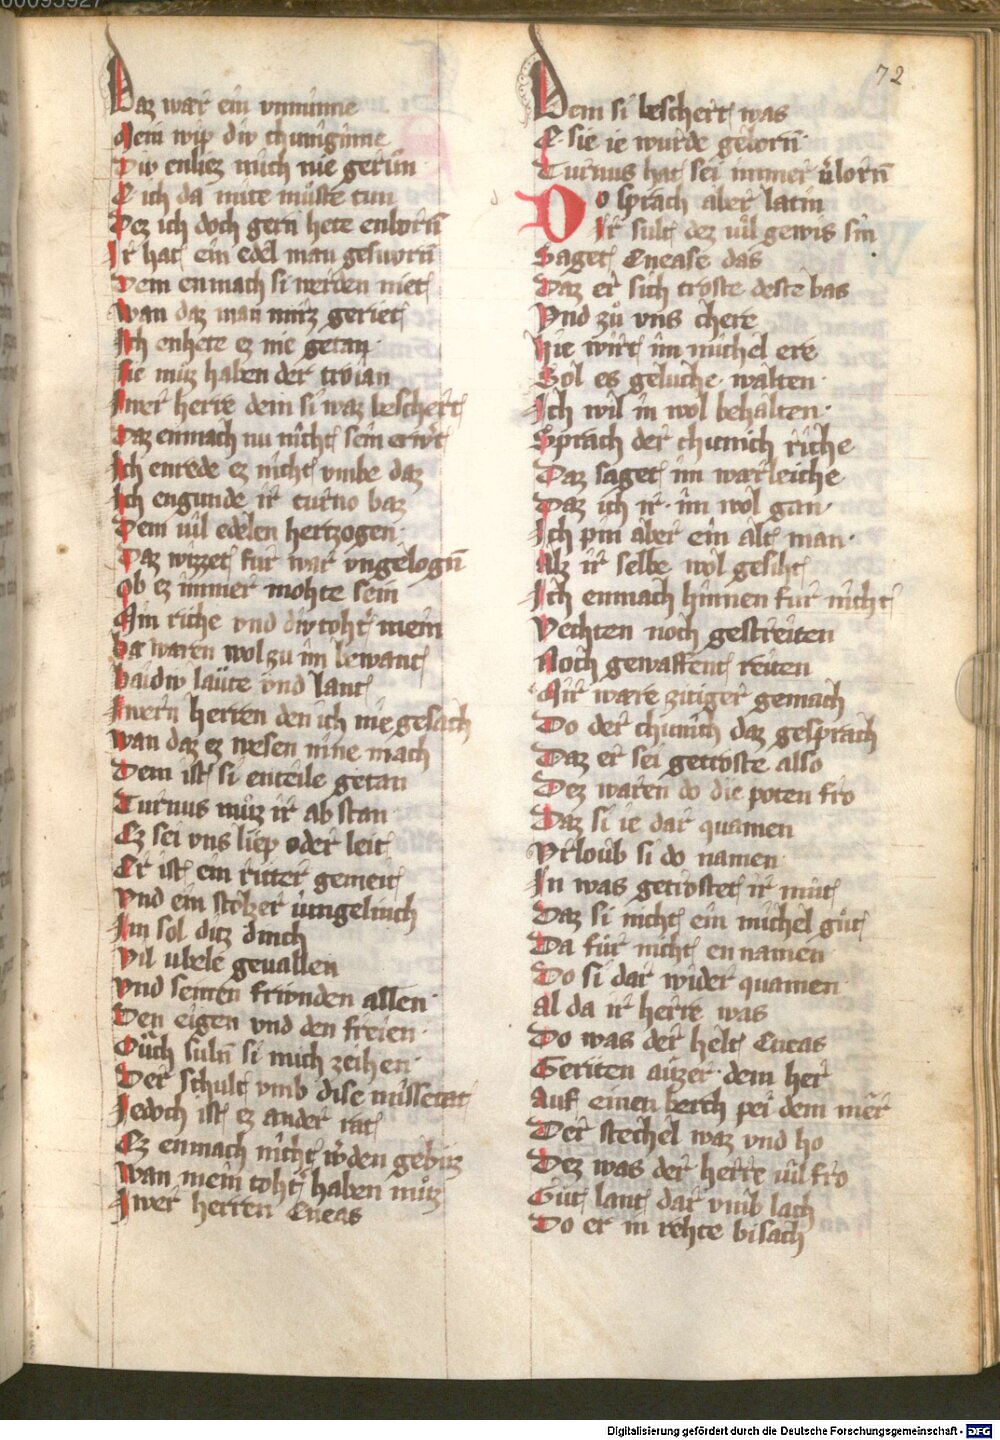 72
Daz wær ein vnminne
Mein wip div chuniginne
Div enliez mich nie gerůn
E ich da mite můste tun
Dez ich doch gern hete enborn̄
Ir hat ein edel man gesworn̄
Dem enmach si werden niet
Wan daz man mirz geriet
Ich enhete ez nie getan
Sie můz haben der troian
Iwer herre dem si waz beschert
Daz enmach nu nicht sein erwͦt
Ich enrede ez nicht vmbe daz
Ich engunde ir turno baz
Dem vil edelen hertzogen
Daz wizzet fur war vngelogn̄
Ob ez immer mohte sein
Min riche vnd div toht͛ mein
Da waren wol zu im bewant
Baidiv laüte vnd lant
Iwern herren den ich nie gesach
Wan daz ez wesen nine mach
Dem ist si enteile getan
Turnus můz ir ab stan
Ez sei vns liep oder leit
Er ist ein ritter gemeit
Vnd ein stolzer iungelinch
Im sol ditz dinch
Vil ubele geuallen
Vnd seinen friunden allen
Den eigen vnd den freien
Oůch suln̄ si mich zeihen
Der schult vmb dise missetat
Iedoch ist ez ander rat
Ez enmach nicht w͛den gebůz
Wan mein toht͛ haben můz
Iwer herren Eneas
Dem si beschert was
E sie ie wurde geborn̄
Turnus hat sei immer v͛lorn̄
Do sprach aber latin
Ir sult dez vil gewis sin
Saget Enease das
Daz er sich troste deste bas
Vnd zů vns chere
Hie wirt im michel ere
Sol es geluche walten
Ich wil in wol behalten
Sprach der chunich riche
Daz saget im wærleiche
Daz ich ir im wol gan
Ich pin aber ein alt man
Alz ir selbe wol gesiht
Ich enmach hinnen fur nicht
Vechten noch gestreiten
Noch gewaffent reiten
Mir ware zitiger gemach
Do der chunich daz gesprach
Daz er sei getroste also
Dez waren do die poten fro
Daz si ie dar quamen
Vrloub si do namen
In was getrostet ir mut
Daz si nicht ein michel gůt
Da für nicht en namen
Do si dar wider quamen
Al da ir herre was
Do was der helt Eneas
Geriten auzer dem her
Auf einen berch pei dem mer
Der stechel waz vnd ho
Dez was der herre vil fro
Gut lant dar vmb lach
Do er in rehte bisach
Digitalisierung gefördert durch die Deutsche Forschungsgemeinschaft - DFG